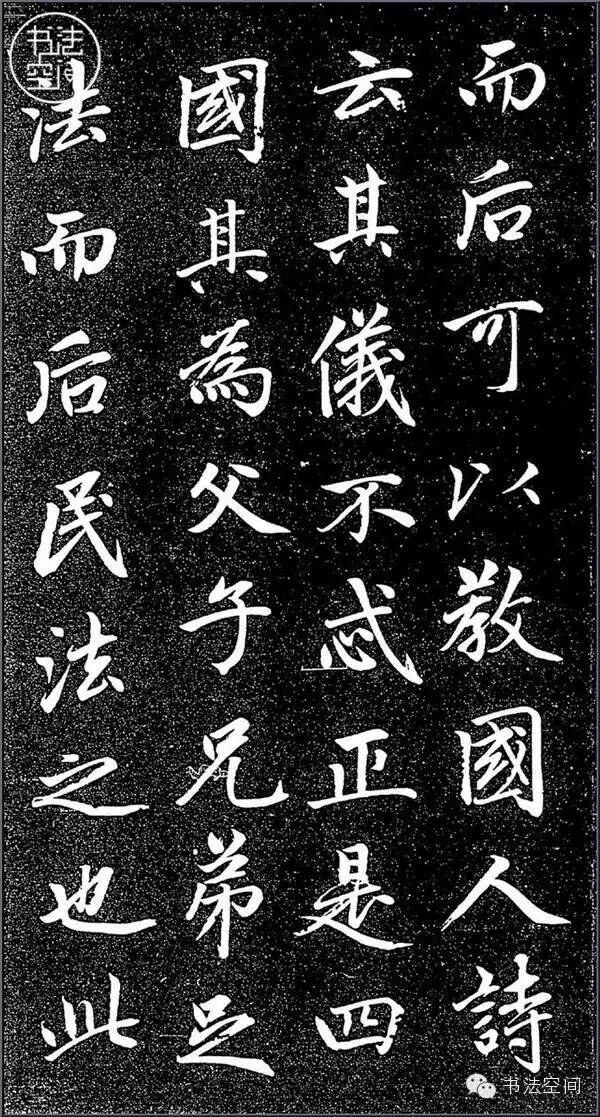 而后可以教國人詩
云其儀不忒正是四
國其為父子兄弟足
法而后民法之也此
书法空间
书法空间